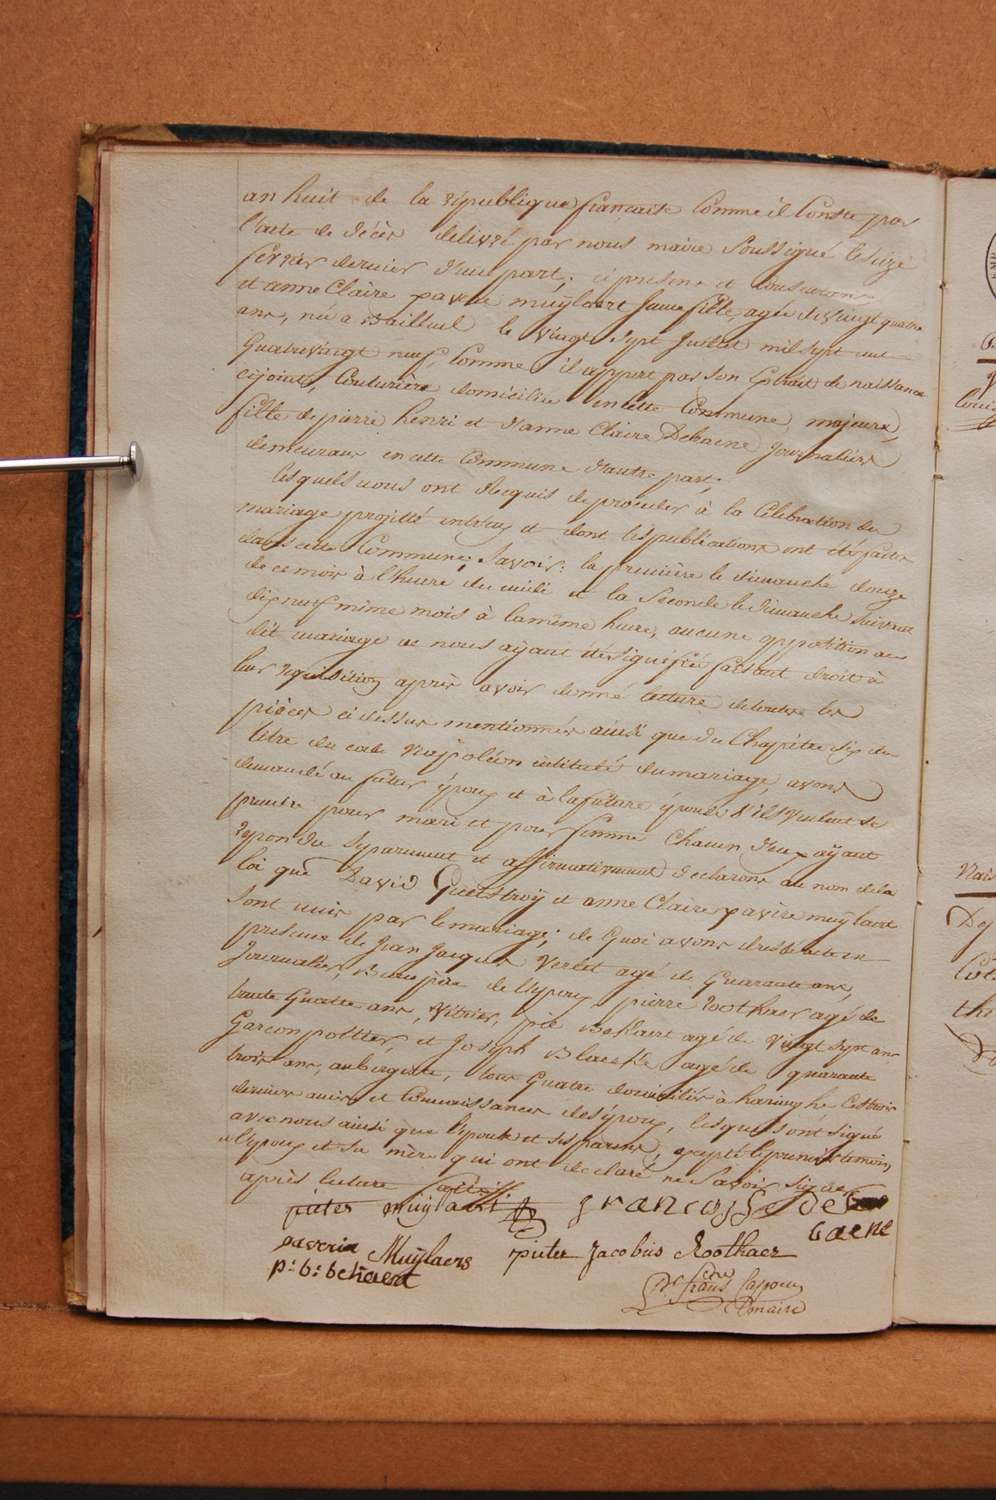 an huit de la république francaise comme il conste par
l'acte de décès délivré par nous maire soussigné le seize
fevrier dernier d'une part, ci presens et consentans
et anne Claire xavere muÿlaert jeune fille agée de vingt quatre
ans, née a Bailleul le vingt sept juillet mil sept cent
quatrevingt neuf, comme il appert par son extrait de naissance
cijoint, couturière domiciliée en cette commune, majeure,
fille de pierre henri et d'anne Claire Debaene journaliers
demeurans en cette commune d'autre part;
lesquels nous ont requis de proceder à la celebration du
mariage projetté entr'eux et dont les publications ont été faites
dans cette commune; savoir: la première le dimanche douze
de ce mois à l'heure du midi et la seconde le dimanche suivant
dix neuf même mois à la même heure, aucune opposition au
dit mariage ne nous aÿant été signifiée faisant droit à
leur requisition après avoir donné lecture de toutes les
pièces ci dessus mentionnées ainsi que du Chapitre six du
titre du code Napoléon intitulé du mariage, avons
demandé au futur époux et à la future épouse s'ils veulent se
prendre pour mari et pour femme chacun d'eux aÿant
repondu separement et affirmativement declarons au nom de la
loi que David Queistroÿ et anne Claire xavire muÿlaert
sont unis par le mariage; de quoi avons dressé acte en
presence de Jean Jacques agé de quarante ans,
Journalier, Beaupère de l'epoux, pierre Roothaer agé de
trente quatre ans, vitrier, pie Bekaert agé de vingt sept ans
Garcon pottier, et Joseph Blaeske agé de quarante
trois ans, aubergiste, tous quatre domiciliés à haringhe les trois
derniers amis et connaissances des époux, lesquels ont signé
avec nous ainsi que l'epouse et ses parens, excepté le premier temoin,
l'epoux et sa mère qui ont declaré ne savoir signer
après lecture faitte./.
pieter muylaert francois De
baene
xaveria Muÿlaers pieter Jacobus Roothaer
p: b: bekaert
maire